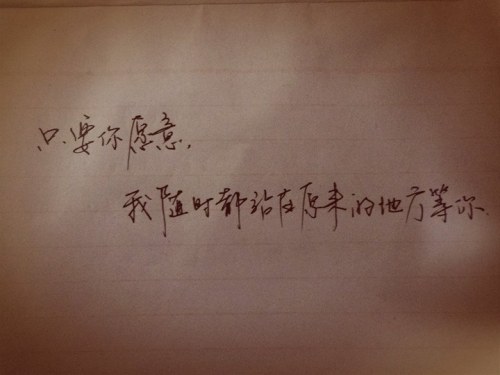 只要你愿意,
我随时都站在原来的地方等你